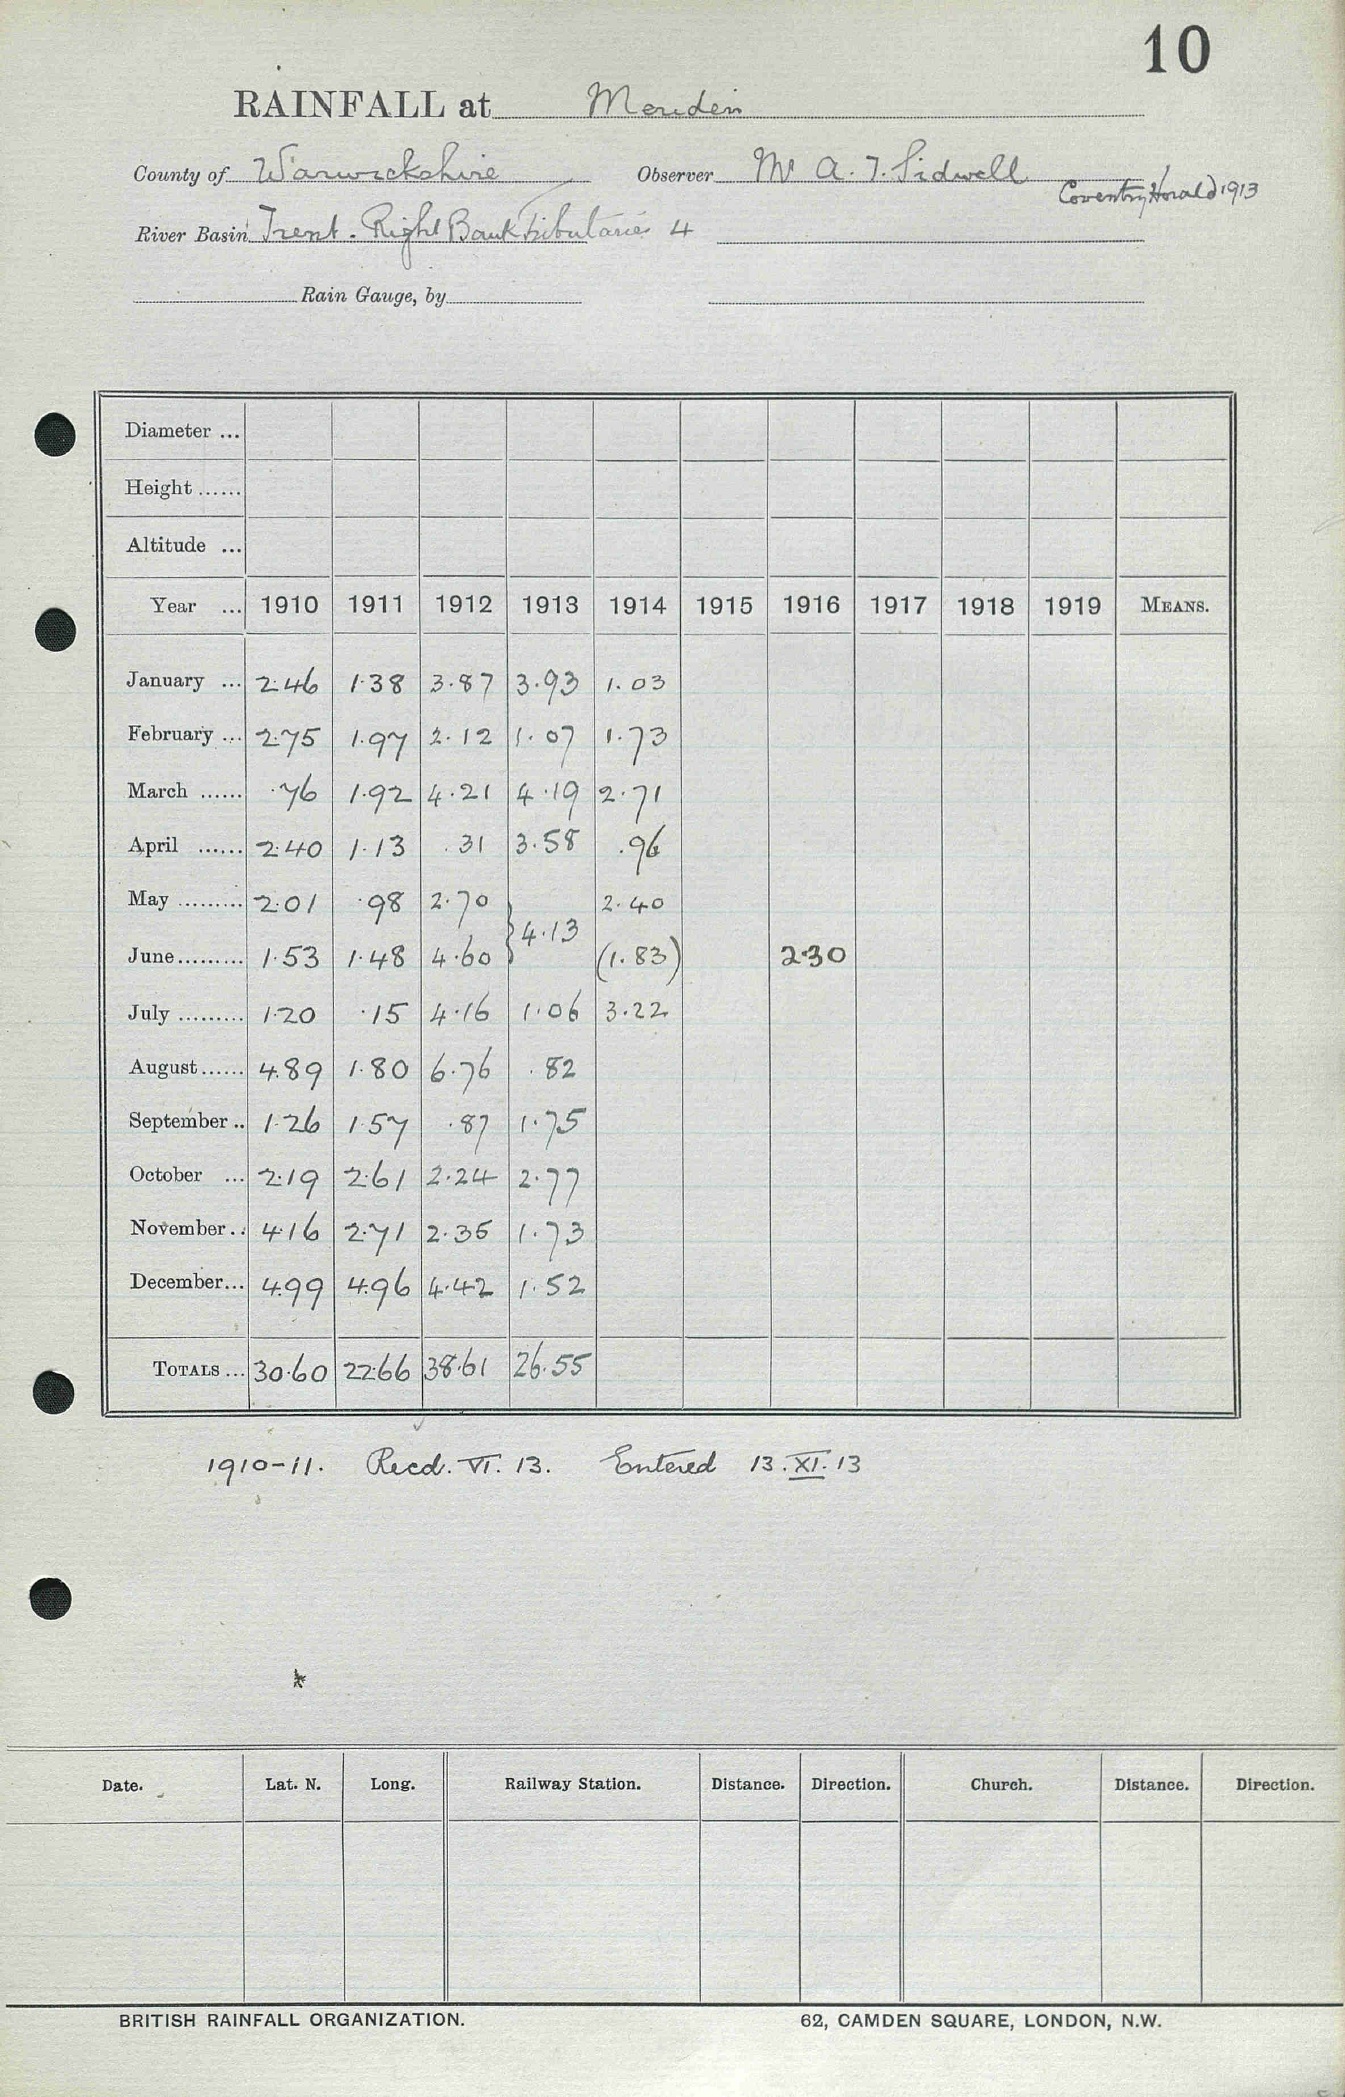 10
RAINFALL at Meriden
County of Warwickshire Observer Mr A. T. Sidwell
Coventry Herald 1913
River Basin Trent - Right Bank Tributaries 4
Rain Gauge, by
Diameter ...
Height ......
Altitude ...
Year ... 1910 1911 1912 1913 1914 1915 1916 1917 1918 1919 MEANS.
January ... 2.46 1.38 3.87 3.93 1.03
February ... 2.75 1.97 2.12 1.07 1.73
March ...... .76 1.92 4.21 4.19 2.71
April ...... 2.40 1.13 .31 3.58 .96
May ......... 2.01 .98 2.70 2.40
} 4.13
June ......... 1.53 1.48 4.60 (1.83) 2.30
July ......... 1.20 .15 4.16 1.06 3.22
August ...... 4.89 1.80 6.76 .82
September .. 1.26 1.57 .87 1.75
October ... 2.19 2.61 2.24 2.77
November .. 4.16 2.71 2.35 1.73
December ... 4.99 4.96 4.42 1.52
TOTALS ... 30.60 22.66 38.61 26.55
1910-11. Recd. VI. 13. Entered 13. XI. 13
Date. Lat. N. Long. Railway Station. Distance. Direction. Church. Distance. Direction.
BRITISH RAINFALL ORGANIZATION. 62, CAMDEN SQUARE, LONDON, N.W.